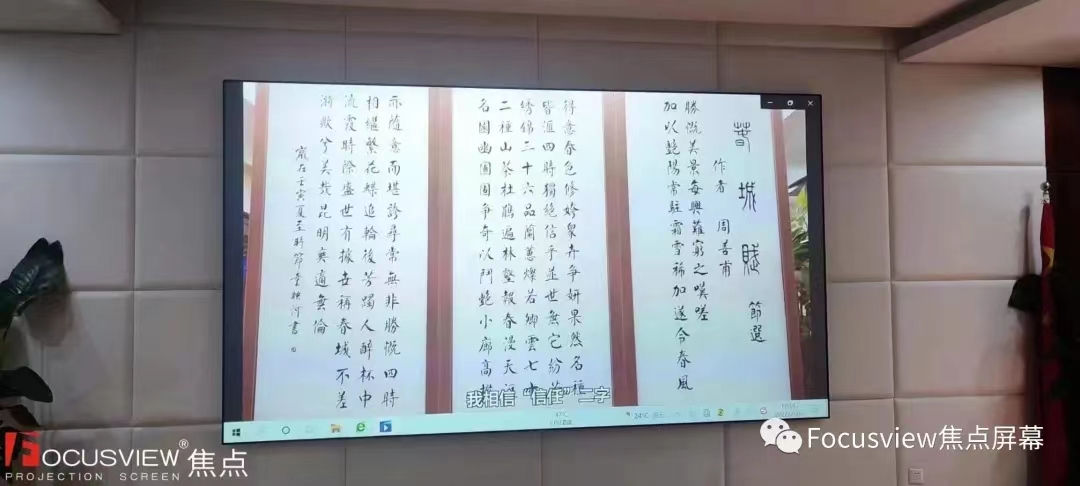 春城賦 節選
作者 周善甫
勝慨美景每興難窮之嘆嗟
加以艷陽常駐霜雪稀加遂令春風
得意春色修姱眾卉爭妍果然名
皆滙四時獨絕信乎並世無它紛
綉錦三十六品蘭蕙燦若卿雲七十
二種山茶杜鵑遍林壑報春漫天涯
名園幽圃圃爭奇以鬥艷小廊高
亦隨意而堪誇尋常無非勝慨四時
相繼繁花媒追輪後芳躅人醉杯中
流霞時際盛世有振古稱春城不差
漪歟兮美哉昆明爽適無倫
歲在壬寅夏至時節 書
我相信“信任”二字
24°C
FOCUSVIEW®焦点
PROJECTION SCREEN
Focusview焦点屏幕